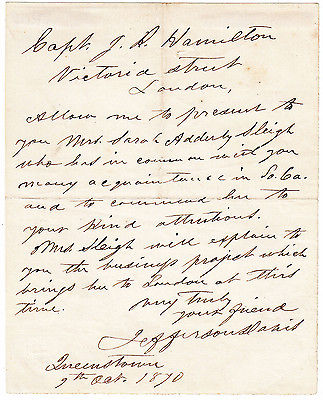 Capt. J. R. Hamilton
Victoria Street
London,
Allow me to present to
you Mrs. Sarah Adderly Sleigh
who has in common with you
many acquaintance in So. Ca.
and to commend her to
your kind attentions.
Mrs Sleigh will explain to
you the business project which
brings her to London at this
time.
Very truly
your friend
Jefferson Davis
Queenstown
9th Oct. 1870